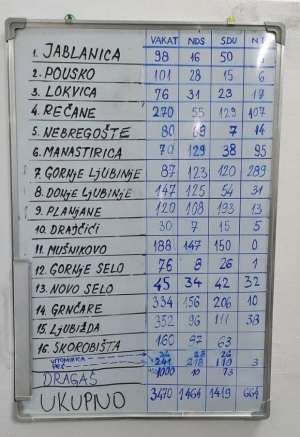 VAKAT NDS SDU
1. JABLANICA 98 16 50
2. POUSKO 101 28 15 6
3. LOKVICA 76 31 23 17
4. REČANE 270 55 129 107
5. NEBREGOŠTE 80 69 7 14
6. MANASTIRICA 70 129 38 95
7. GORNJE LJUBINJE 87 123 120 289
8. DONJE LJUBINJE 147 125 54 31
9. PLANJANE 120 108 193 13
10. DRAJČIĆI 30 7 15 5
11. MUŠNIKOVO 188 147 150 0
12. GORNJE SELO 76 8 26 1
13. NOVO SELO 45 34 42 32
14. GRNČARE 334 156 206 10
15. LJUBIŽDA 352 96 111 38
16. SKOROBIŠTA 160 87 63
VITOMIRICA
PEĆ 241 3
DRAGAŠ 1000 10 73
UKUPNO 3470 1464 1419 664